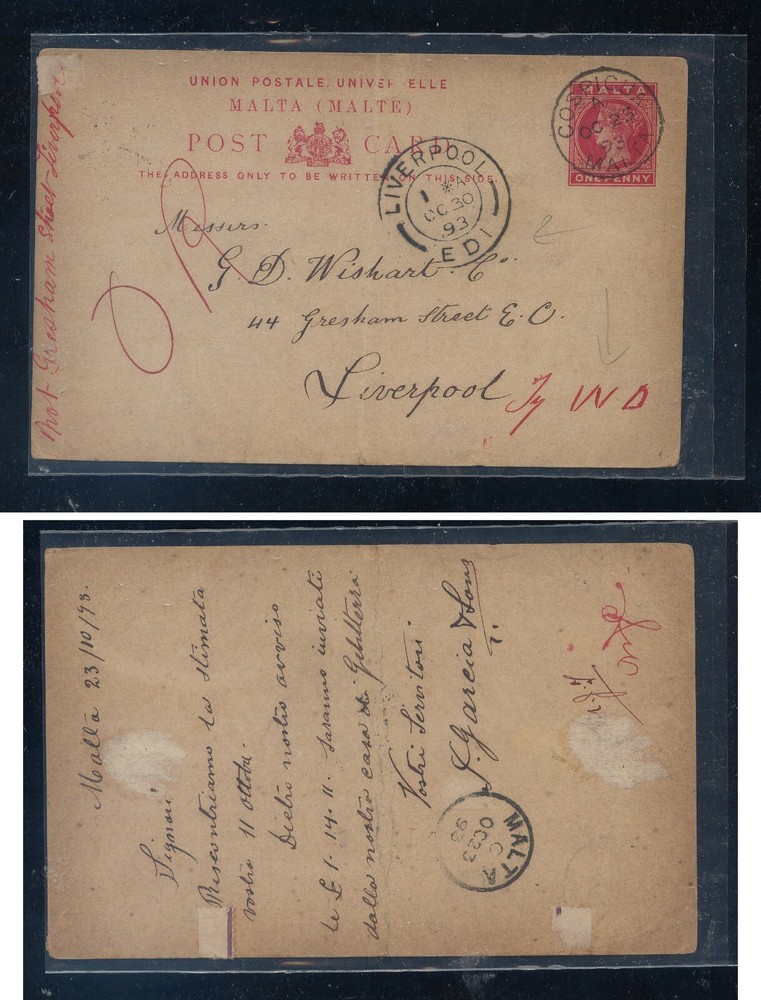 UNION POSTALE UNIVE ELLE
MALTA (MALTE)
POST CARD
THE ADDRESS ONLY TO BE WRITTEN ON THIS SIDE.
MALTA
ONE PENNY
COSPICUA
A
OC 23
93
MALTA
LIVERPOOL
1 * A
OC 30
93
EDI
Messers.
G. D. Wishart. Co.
44 Gresham Street E. C.
Liverpool
Ty W D
Not Gresham Street Liverpool
Malta 23/10/93.
Signori
Riscontriamo la stimata
vostra 11 Ottobre.
Dietro nostro avviso
le £ 1. 14. 11. saranno inviati
dalla nostra casa di Gibilterra
Vostri Servitori
J. Garcia & Sons
MALTA
C
OC 23
93